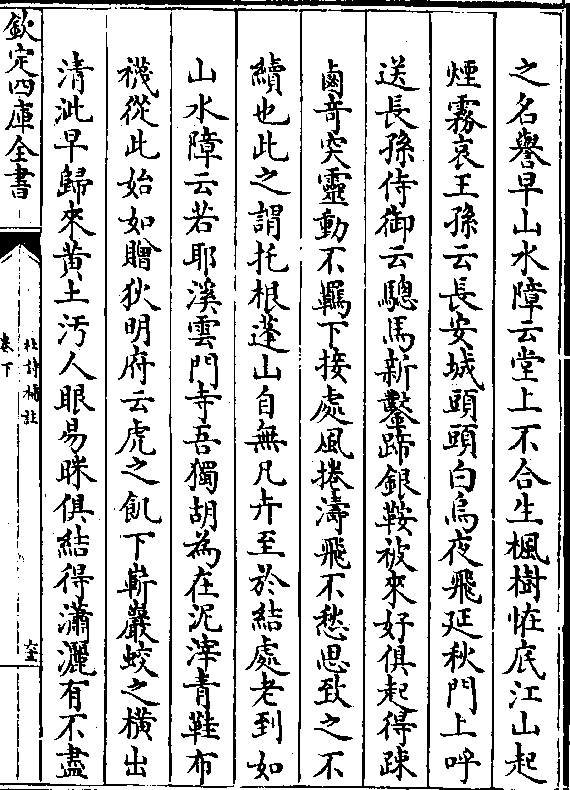 之名譽早山水障云堂上不合生楓樹恠底江山起
煙霧哀王孫云長安城頭頭白烏夜飛延秋門上呼
送長孫侍御云驄馬新鑿蹄銀鞍被來好俱起得踈
鹵竒突靈動不羈下接處風捲濤飛不愁思致之不
續也此之謂托根蓬山自無凡卉至於結處老到如
山水障云若耶溪雲門寺吾獨胡為在泥滓青鞋布
襪從此始如贈狄明府云虎之飢下嶄巖蛟之橫出
清泚早歸來黃土汚人眼易眯俱結得瀟灑有不盡
欽定四庫全書
杜詩攟註
卷下